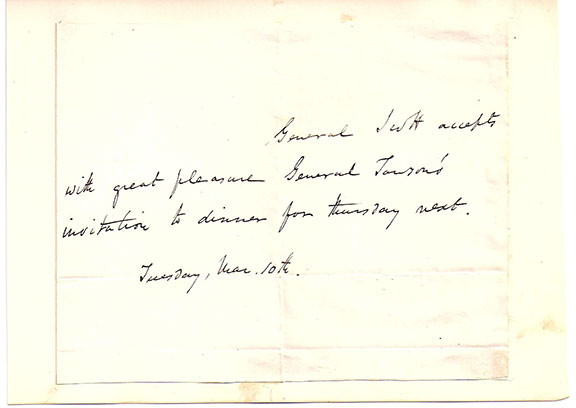 General Scott accepts
with great pleasure General Towson's
invitation to dinner for thursday next.
Tuesday, Mar. 10th.